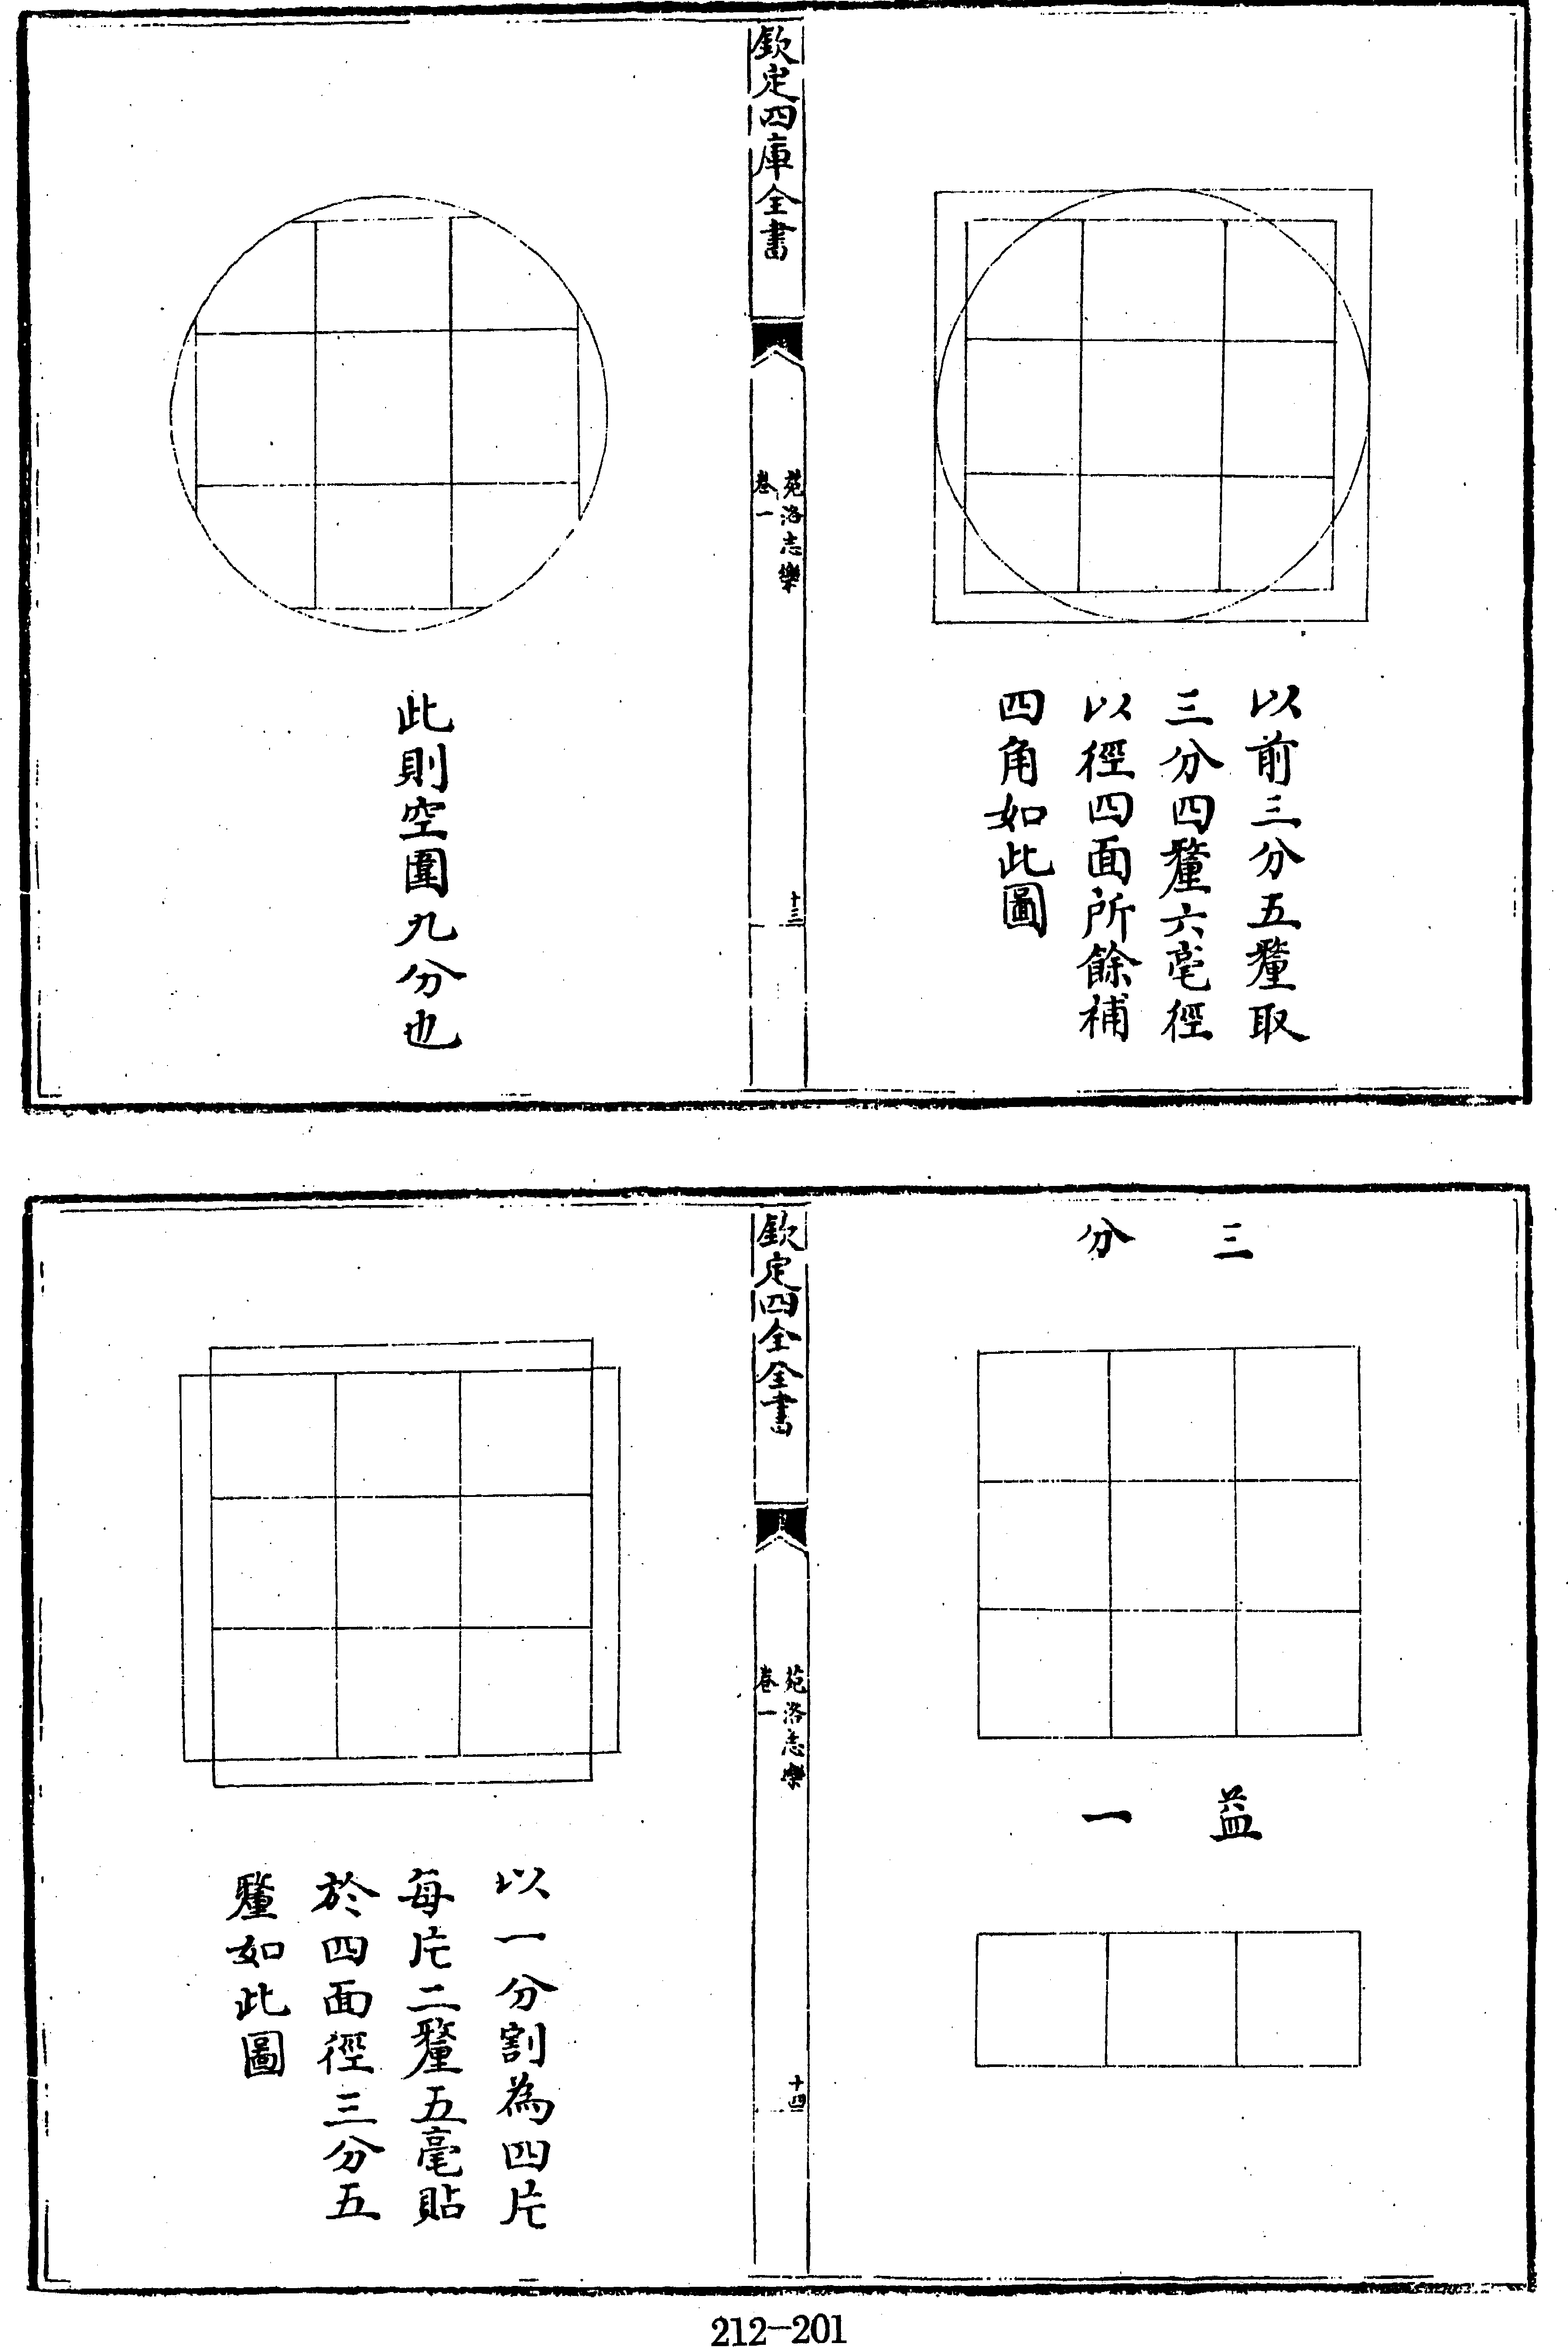 以前三分五釐取
三分四釐六毫徑
以徑四面所餘補
四角如此圖
欽定四庫全書
苑洛志樂
卷一
十三
此則空圍九分也
三分
益一
欽定四全全書
苑洛志樂
卷一
十四
以一分割為四片
每片二釐五毫貼
於四面徑三分五
釐如此圖
212-201